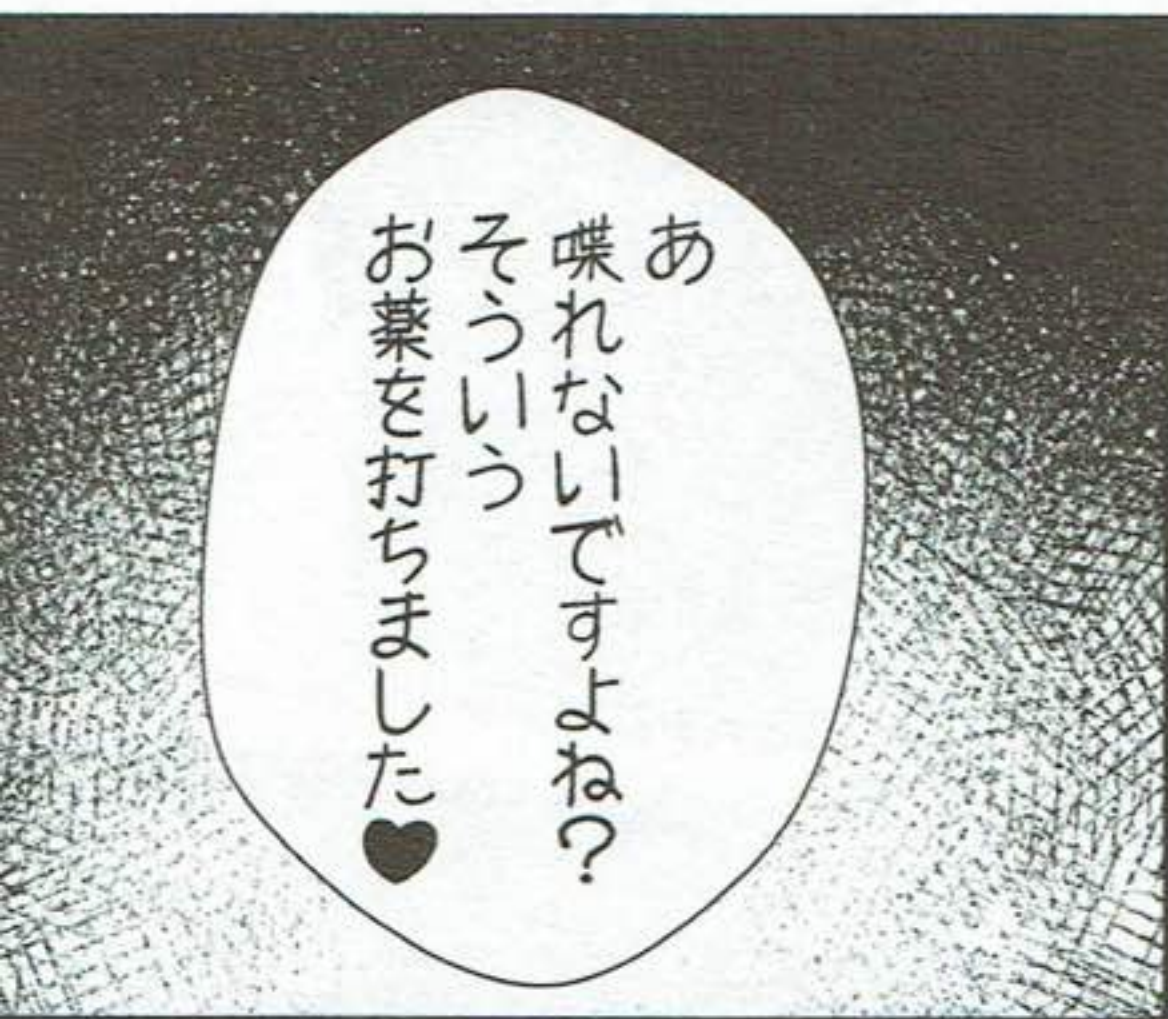 あ
喋れないですよね?
そういう
お薬を打ちました♥